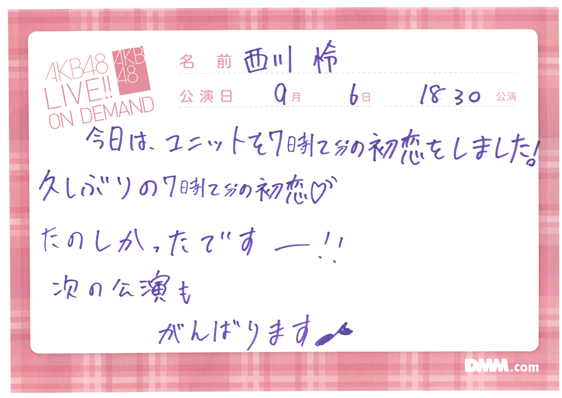 AKB48
LIVE!!
ON DEMAND
AKB
48
名前 西川 怜
公演日 9月 6日 1830 公演
今日は、ユニットを7時12分の初恋をしました!
久しぶりの7時12分の初恋♡
たのしかったですー!!
次の公演も
がんばります
DMM.com